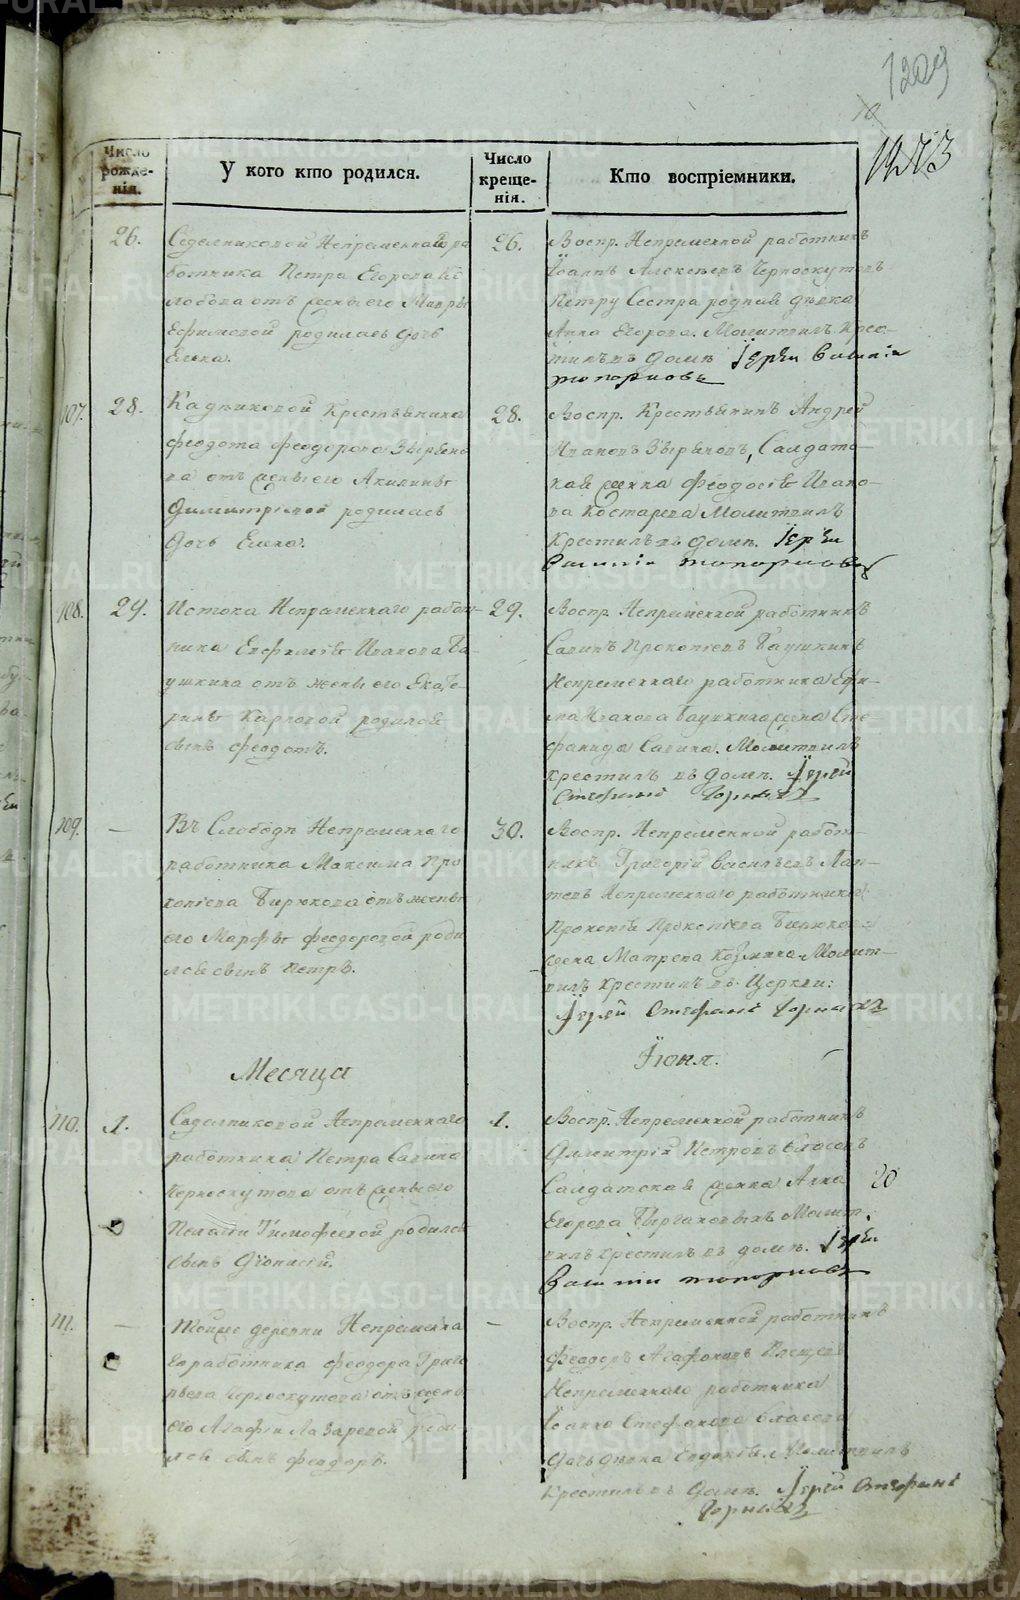 1209
1473
Число рожде-нія.
У кого кто родился.
Число креще-нія.
Кто воспріемники.
26.
Седелниковой Непременнаго ра
ботника Петра Егорова
от жены его Мавры
Ефимовой родилась дочь
Елена.
26.
Воспр. Непременной работникъ
Іоаннъ Алексеевъ Черноскутовъ
Петру Сестра родная девка
Анна Егорова. Молитвилъ Крес-
тилъ въ доме Іерей Василій
топорковъ
107.
28.
Кадниковой Крестьянина
Феодота Феодорова Зыряно
ва отъ жены его Акилины
Димитріевой родилась
Дочь Елена.
28.
Воспр. Крестьянинъ Андрей
Ивановъ Зыряновъ, Салдатс-
кая женка Феодосія Ивано-
ва Костарева Молитвилъ
Крестилъ въ доме. Іерей
Василій топорковъ
108.
29.
Истока Непременнаго работ-
ника Евфимія Иванова Ба-
ушкина отъ жены его Екате-
рины Карповой родился
сынъ Феодотъ.
29.
Воспр. Непременной работникъ
Савинъ Прокопіевъ Баушкинъ
Непременнаго работника Ефи-
ма Иванова Баушкина жена Сте-
фанида Савина. Молитвилъ
крестилъ въ доме. Іерей
Стефанъ Горныхъ
109.
—
Въ Слободе Непременнаго
работника Максима Про
копіева Бирюкова отъ жены
его Марфы Феодоровой роди
лся сынъ Петръ.
30.
Воспр. Непременной работ-
никъ Григорій Васильевъ Лап-
тевъ Непременнаго работника
Прокопія Прокопіева Бирюкова
жена Матрена Козмина. Молит-
вилъ крестилъ въ Церкви:
Іерей Стефанъ Горныхъ
Месяца
Іюня.
110.
1.
Седелниковой Непременнаго
работника Петра Савина
Черноскутова отъ жены его
Пелагіи Тимофеевой родился
сынъ Діонисій.
1.
Воспр. Непременной работникъ
Димитрій Петровъ Власовъ
Салдатская женка Анна
Егорова Молит-
вилъ крестилъ въ доме. Іерей
Василій топорковъ
20
111.
—
Тойже деревни Непременна
го работника Феодора Григо
рьева Черноскутова отъ жены
его Агафіи Лазаревой роди
лся сынъ Феодоръ.
—
Воспр. Непременной работникъ
Феодоръ Агафоновъ
Непременнаго работника
Іоанна Стефанова Власова
дочь девка Евдокія. Молитвилъ
Крестилъ въ доме. Іерей Стефанъ
Горныхъ
METRIKI.GASO-URAL.RU